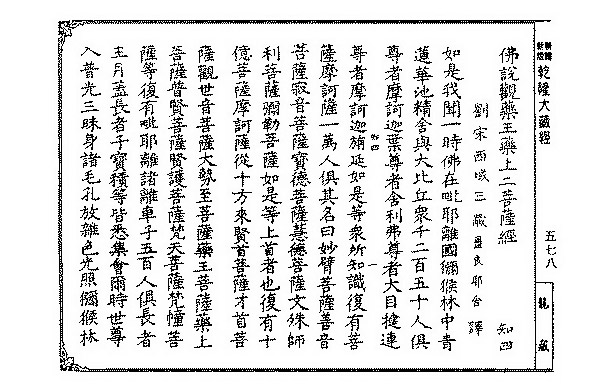 新編
新縮
乾隆大藏經
五七八
龍藏
佛說觀藥王藥上二菩薩經
知四
劉宋西域三藏畺良耶舍 譯
如是我聞一時佛在毗耶離國獼猴林中青
蓮華池精舍與大比丘眾千二百五十人俱
尊者摩訶迦葉尊者舍利弗尊者大目揵連
尊者摩訶迦旃延如是等眾所知識復有菩
知四
一
薩摩訶薩一萬人俱其名曰妙臂菩薩善音
菩薩寂音菩薩寶德菩薩慧德菩薩文殊師
利菩薩彌勒菩薩如是等上首者也復有十
億菩薩摩訶薩從十方來賢首菩薩才首菩
薩觀世音菩薩大勢至菩薩藥王菩薩藥上
菩薩普賢菩薩賢護菩薩梵天菩薩梵幢菩
薩等復有毗耶離諸離車子五百人俱長者
主月蓋長者子寶積等皆悉集會爾時世尊
入普光三昧身諸毛孔放雜色光照獼猴林